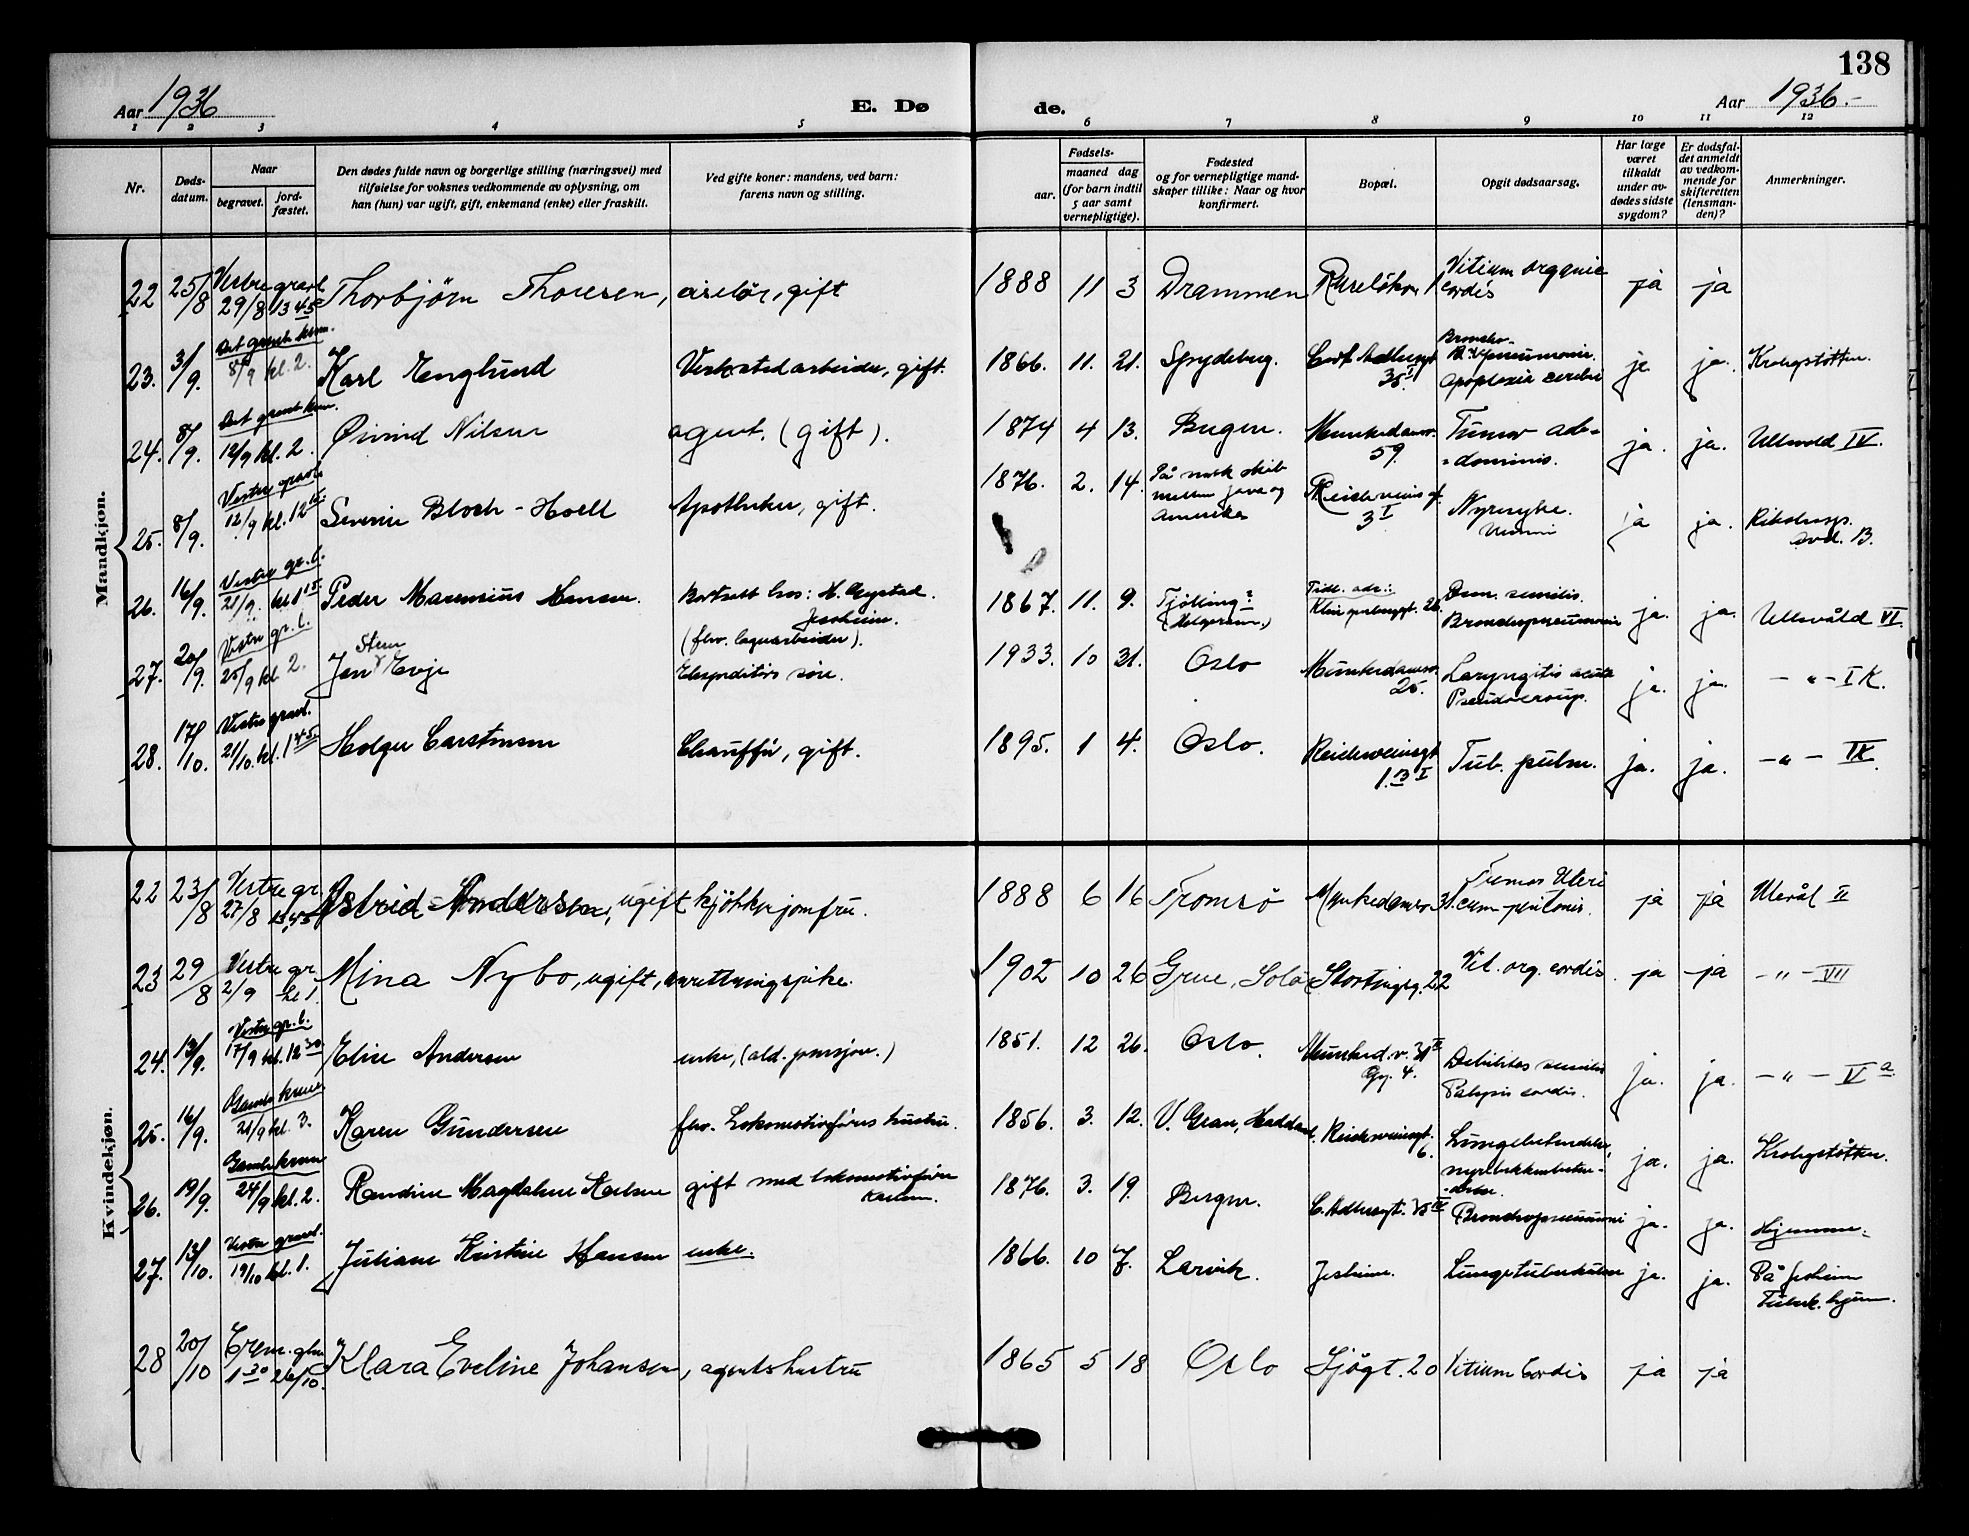 138
Aar 1936 E. Dø de. Aar 1936.-
1 2 3 4 5 6 7 8 9 10 11 12
Nr.
Døds-
datum.
Naar
begravet.
jord-
fæstet.
Den dødes fulde navn og borgerlige stilling (næringsvei) med
tilføielse for voksnes vedkommende av oplysning, om
han (hun) var ugift, gift, enkemand (enke) eller fraskilt.
Ved gifte koner: mandens, ved barn:
farens navn og stilling.
Fødsels-
aar.
maaned dag
(for barn indtil
5 aar samt
vernepligtige).
Fødested
og for vernepligtige mand-
skaper tillike: Naar og hvor
konfirmert.
Bopæl.
Opgit dødsaarsag.
Har læge
været
tilkaldt
under av-
dødes sidste
sygdom?
Er dødsfal-
det anmeldt
av vedkom-
mende for
skifteretten
(lensman-
den)?
Anmerkninger.
Mandkjøn.
22 25/8 Vestre gravl. 29/8 13 45 Thorbjörn Thoresen, ciselör, gift 1888 11 3 Drammen Vitium organic cordis ja ja
23. 3/9. Det gamle krem. 8/9 kl. 2. Karl Englund Verkstedarbeider, gift. 1866. 11. 21. Spydeberg. Broncho-pneumonie. Apoplexia cerebri ja ja. Krohgstøtten.
24. 8/9. Det gamle krem. 12/9 kl. 2. Øivind Nilsen agent. (gift). 1874 4 13. Bergen. Munkedamsv. 59. Tumor ab-
-dominis. ja. ja. Ullevold IV.
25. 8/9. Vestre gravl. 12/9 kl. 12 Severin Bloch-Hoell Apotheker, gift. 1876. 2. 14. På norsk skib mellem Java og Amerika 3 I Nyresyke. Uremi ja ja. Rikshosp. avd. B.
26. 16/9. Vestre gr.l. 21/9. kl. 1 15 Peder Maremius Hansen. Bortsatt hos: H. Nystad. Jessheim. 1867. 11. 9. Tjölling? Tidl. adr.: Dem. senilis. Bronchopneumonie ja. ja. Ullevåld VI.
27. 20/9. Vestre gr.l. 25/9 kl 2. Jan Sten Evje Ekspeditørs sön. 1933. 10 31. Oslo Munkedamsv. 25. Laryngitis acuta Pseudocroup. ja. ja. - " - I K.
28. 17/10. Vestre gravl. 21/10. kl. 1 45 Holger Carstensen Chauffør, gift. 1895. 1 4. Oslo. Reichweinsgt 1. B I Tub. pulm. ja. ja. - " - IX
Kvindekjøn.
22 23/8 Vestre gr. 27/8 13,45 Astrid Andersen, ugift kjökkenjomfru. 1888 6 16 Tromsö Munkedamsv. 31. Tumor Uteri cum peritonis. ja ja Ulevål II
23 29/8 Vestre gr. 2/9 kl 1. Mina Nybo, ugift, anrettningspike. 1902 10 26 Grue, Solör Stortingsg. 22 Vit. org. cordis. ja ja - " - VII
24. 13/9. Vestre gr.l. 17/9 kl. 12 30 Elise Andersen enke, (ald. pensjon.) 1851. 12 26. Oslo. Munked.v. 31 II Debilitas senilis cordis. ja. ja. - " - V a
25. 16/9. Gamle krem. 21/9 kl. 3. Karen Gundersen fhv. Lokomotivförers hustru. 1856. 3. 12. V. Gran, Hadeland. Reichweinsgt. 6. Lungebetendelse, nyrebekkenbeten-
-delse. ja. ja. Krohgstøtten.
26. 19/9. Gamle krem 24/9 kl. 2. Randine Magdalene Karlsen gift med lokomotivförer Karlsen. 1876. 3. 19. Bergen. C. Adlersgt. 35 IV Bronchopneumoni ja. ja. Hjemme.
27. 13/10. Vestre gravl. 19/10 kl. 1. Juliane Kristine Hansen enke. 1866. 10 7. Larvik. Jesheim. Lungetuberkulose ja. ja. På Jesheim Tuberk. hjem.
28 20/10 Crem. gml 1 30 26/10. Klara Eveline Johansen, agents hustru 1865 5 18 Oslo Sjögt. 20 Vitium Cordis ja ja